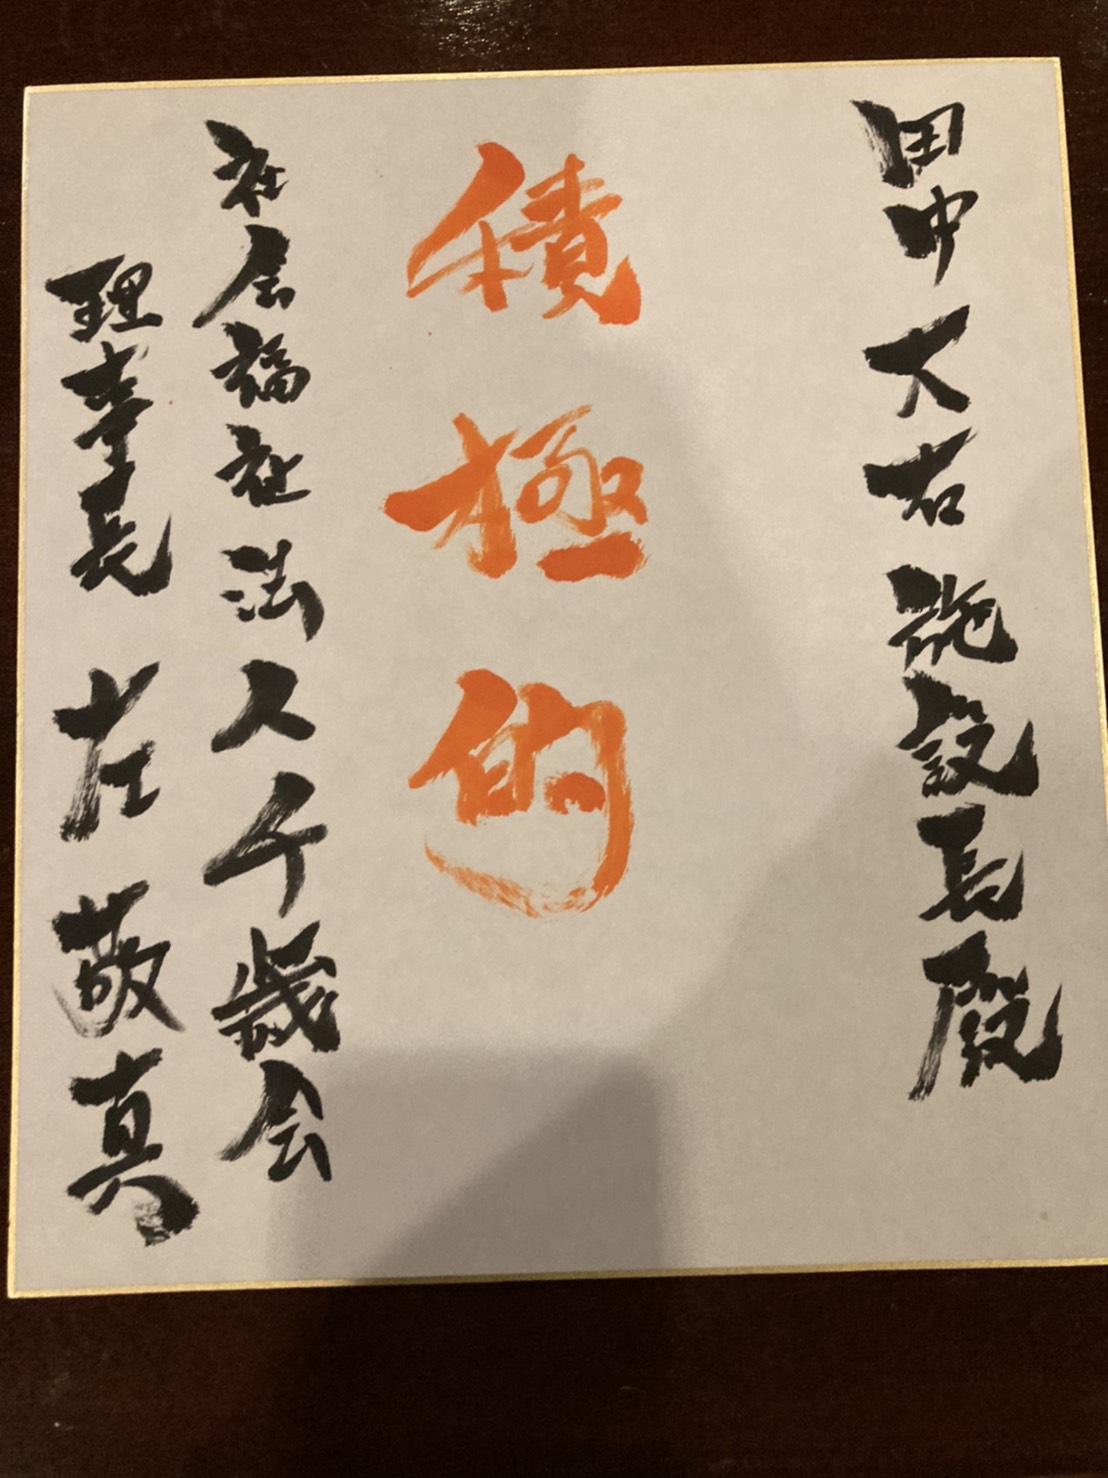 田中大右施設長殿
積極的
社会福祉法人千歳会
理事長 左敬真